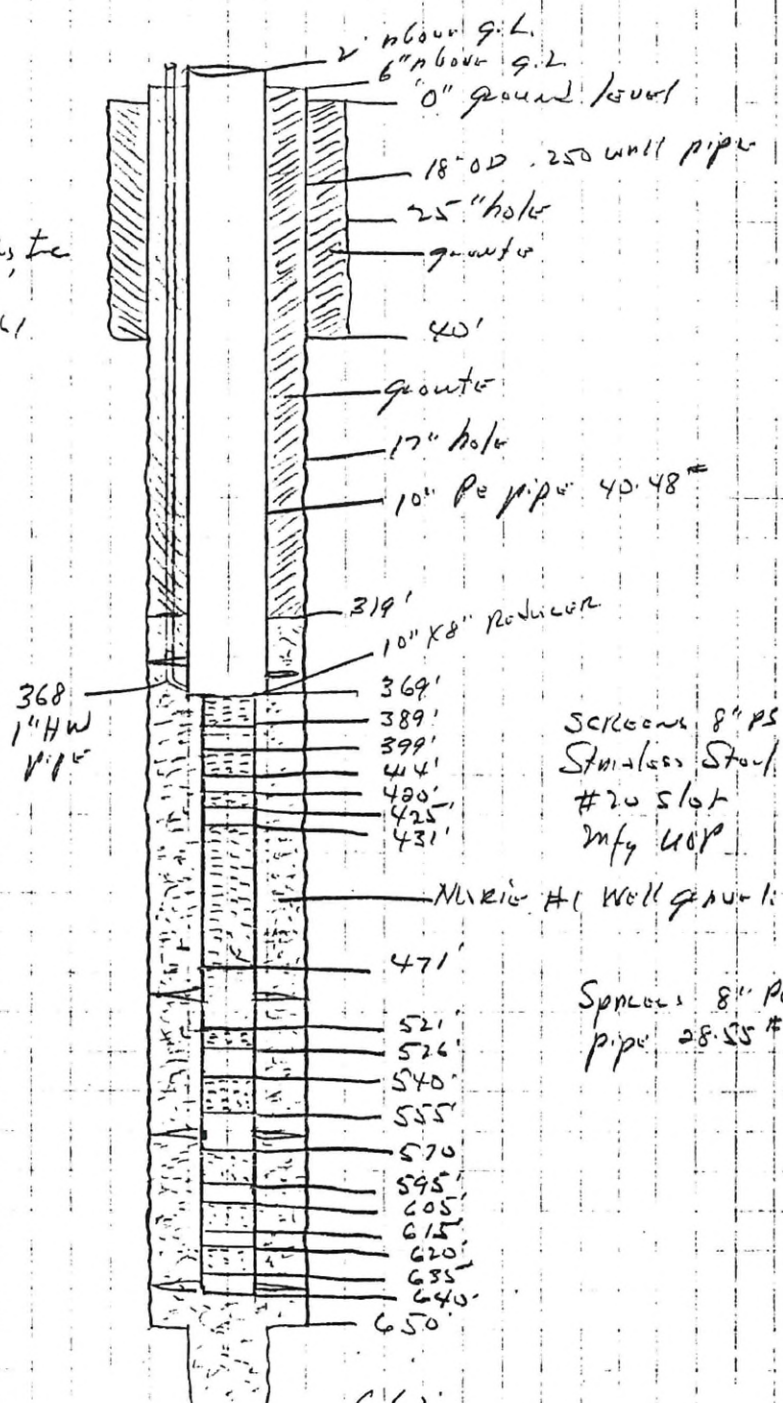 2' above g.L.
6" above g.L.
"0" ground level
18" OD .250 wall pipe
25" hole
groute
40'
groute
17" hole
10" Pe pipe 40.48#
319'
10" X 8" Reducer
368
1" HW
pipe
369'
389'
399'
414'
420'
425'
431'
Screens 8" PS
Stainless Steel
#20 slot
Mfg UOP
#1 Well gravel
471'
521'
526'
Spacers 8" P
pipe 28.55#
540'
555'
570
595'
605'
615'
620'
635'
640'
650'